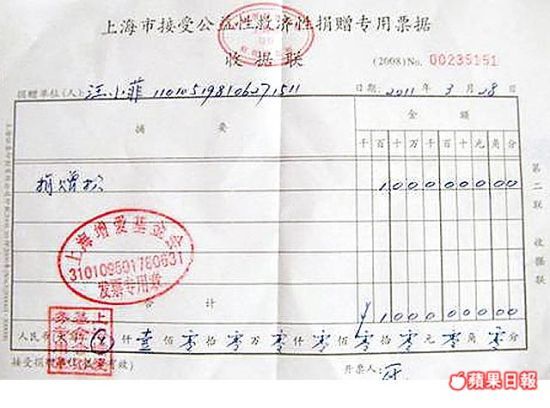 上海市接受公益性救济性捐赠专用票据
收据联
(2008)No. 00235151
捐赠单位(人):汪小菲 110105198106271511 日期:2011年3月28日
摘要 金额
千百十万千百十元角分
捐赠款 1,000,000.00
上海增爱基金会
310109501780631
发票专用章
合计 ¥1,000,000.00
人民币 仟壹佰零拾零万零仟零佰零拾零元零角零分
接受捐赠单位 有效) 开票人:
第二联 收据联
蘋果日報